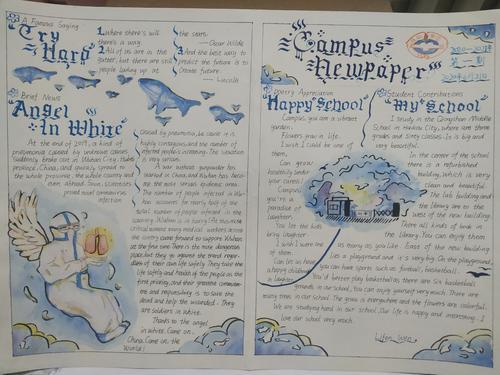 A Famous Saying
Cry
Hard
1. Where there's will
there's a way.
2. All of us are in the
gutter, but there are still
people looking up at
the stars.
— Oscar Wilde
3. And the best way to
predict the future is to
create future.
— Lincoln
Brief News
Angel
In White
At the end of 2019, a kind of
pneumonia caused by unknown causes
suddenly broke out in Wuhan City, Hubei
province, China, and quickly spread to
the whole province, the whole country and
even abroad. Soon, scientists
proved novel coronavirus
infection
Caused by pneumonia, because it is
highly contagious, and the number of
infected people is increasing. The situation
is very urgent.
A war without gunpowder has
started in China, and Wuhan has become
the most serious epidemic area.
The number of people infected in Wuhan
accounts for nearly half of the
total number of people infected in the
country. Wuhan is in hurry! The most
critical moment many medical workers across
the country came forward to support Wuhan
at the first time. There is the most dangerous
place, but they go against the trend regardless
of their own life safety. They take the
life safety and health of the people as the
first priority, and their greatest commitment
and responsibility is to save the
dead and help the wounded. They
are soldiers in white.
Thanks to the angel
in white. Come on,
China. Come on the
World!
Campus
Newpaper
第二期
Poetry Appreciation
Happy School
Campus, you are a vibrant
garden.
Flowers grow in it.
Wish I could be one of
them,
Can grow
healthily under
your care!
Campus,
you're a
paradise of
laughter.
You let the kids
bring laughter
I wish I were one
of them,
Can let us have
a happy childhood
in laughter
Student Contributions
"My School"
I study in the Qingshan Middle
School in Wuhan City, where are three
grades and sixty classes. Is is big and
very beautiful.
In the center of the school
there is a refurbished
building, which is very
clean and beautiful.
The lab building and
the library are to the
west of the new building
There are all kinds of books in
the library. You can enjoy them
as many as you like. East of the new building
lies a playground and it's very big. On the playground,
you can have sports such as football, basketball.
You'd better play basketball as there are six basketball
grounds in our school. You can enjoy yourself very much. There are
many trees in our school. The grass is everywhere and the flowers are colorful.
We are studying hard in our school. Our life is happy and interesting. I
love our school very much.